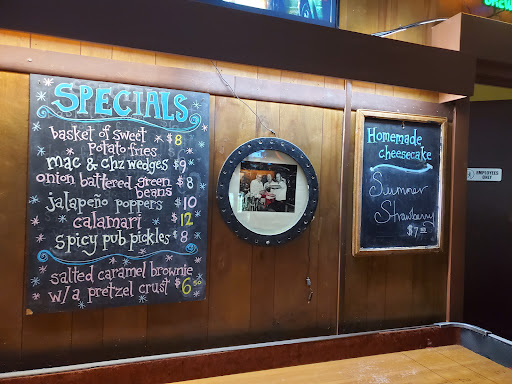 SPECIALS
basket of sweet
potato fries $8
mac & chz wedges $9
onion battered green
beans $8
jalapeño poppers $10
calamari $12
spicy pub pickles $8
salted caramel brownie
w/a pretzel crust $6.50
Homemade
cheesecake
Summer
Strawberry
$7.50
EMPLOYEES
ONLY